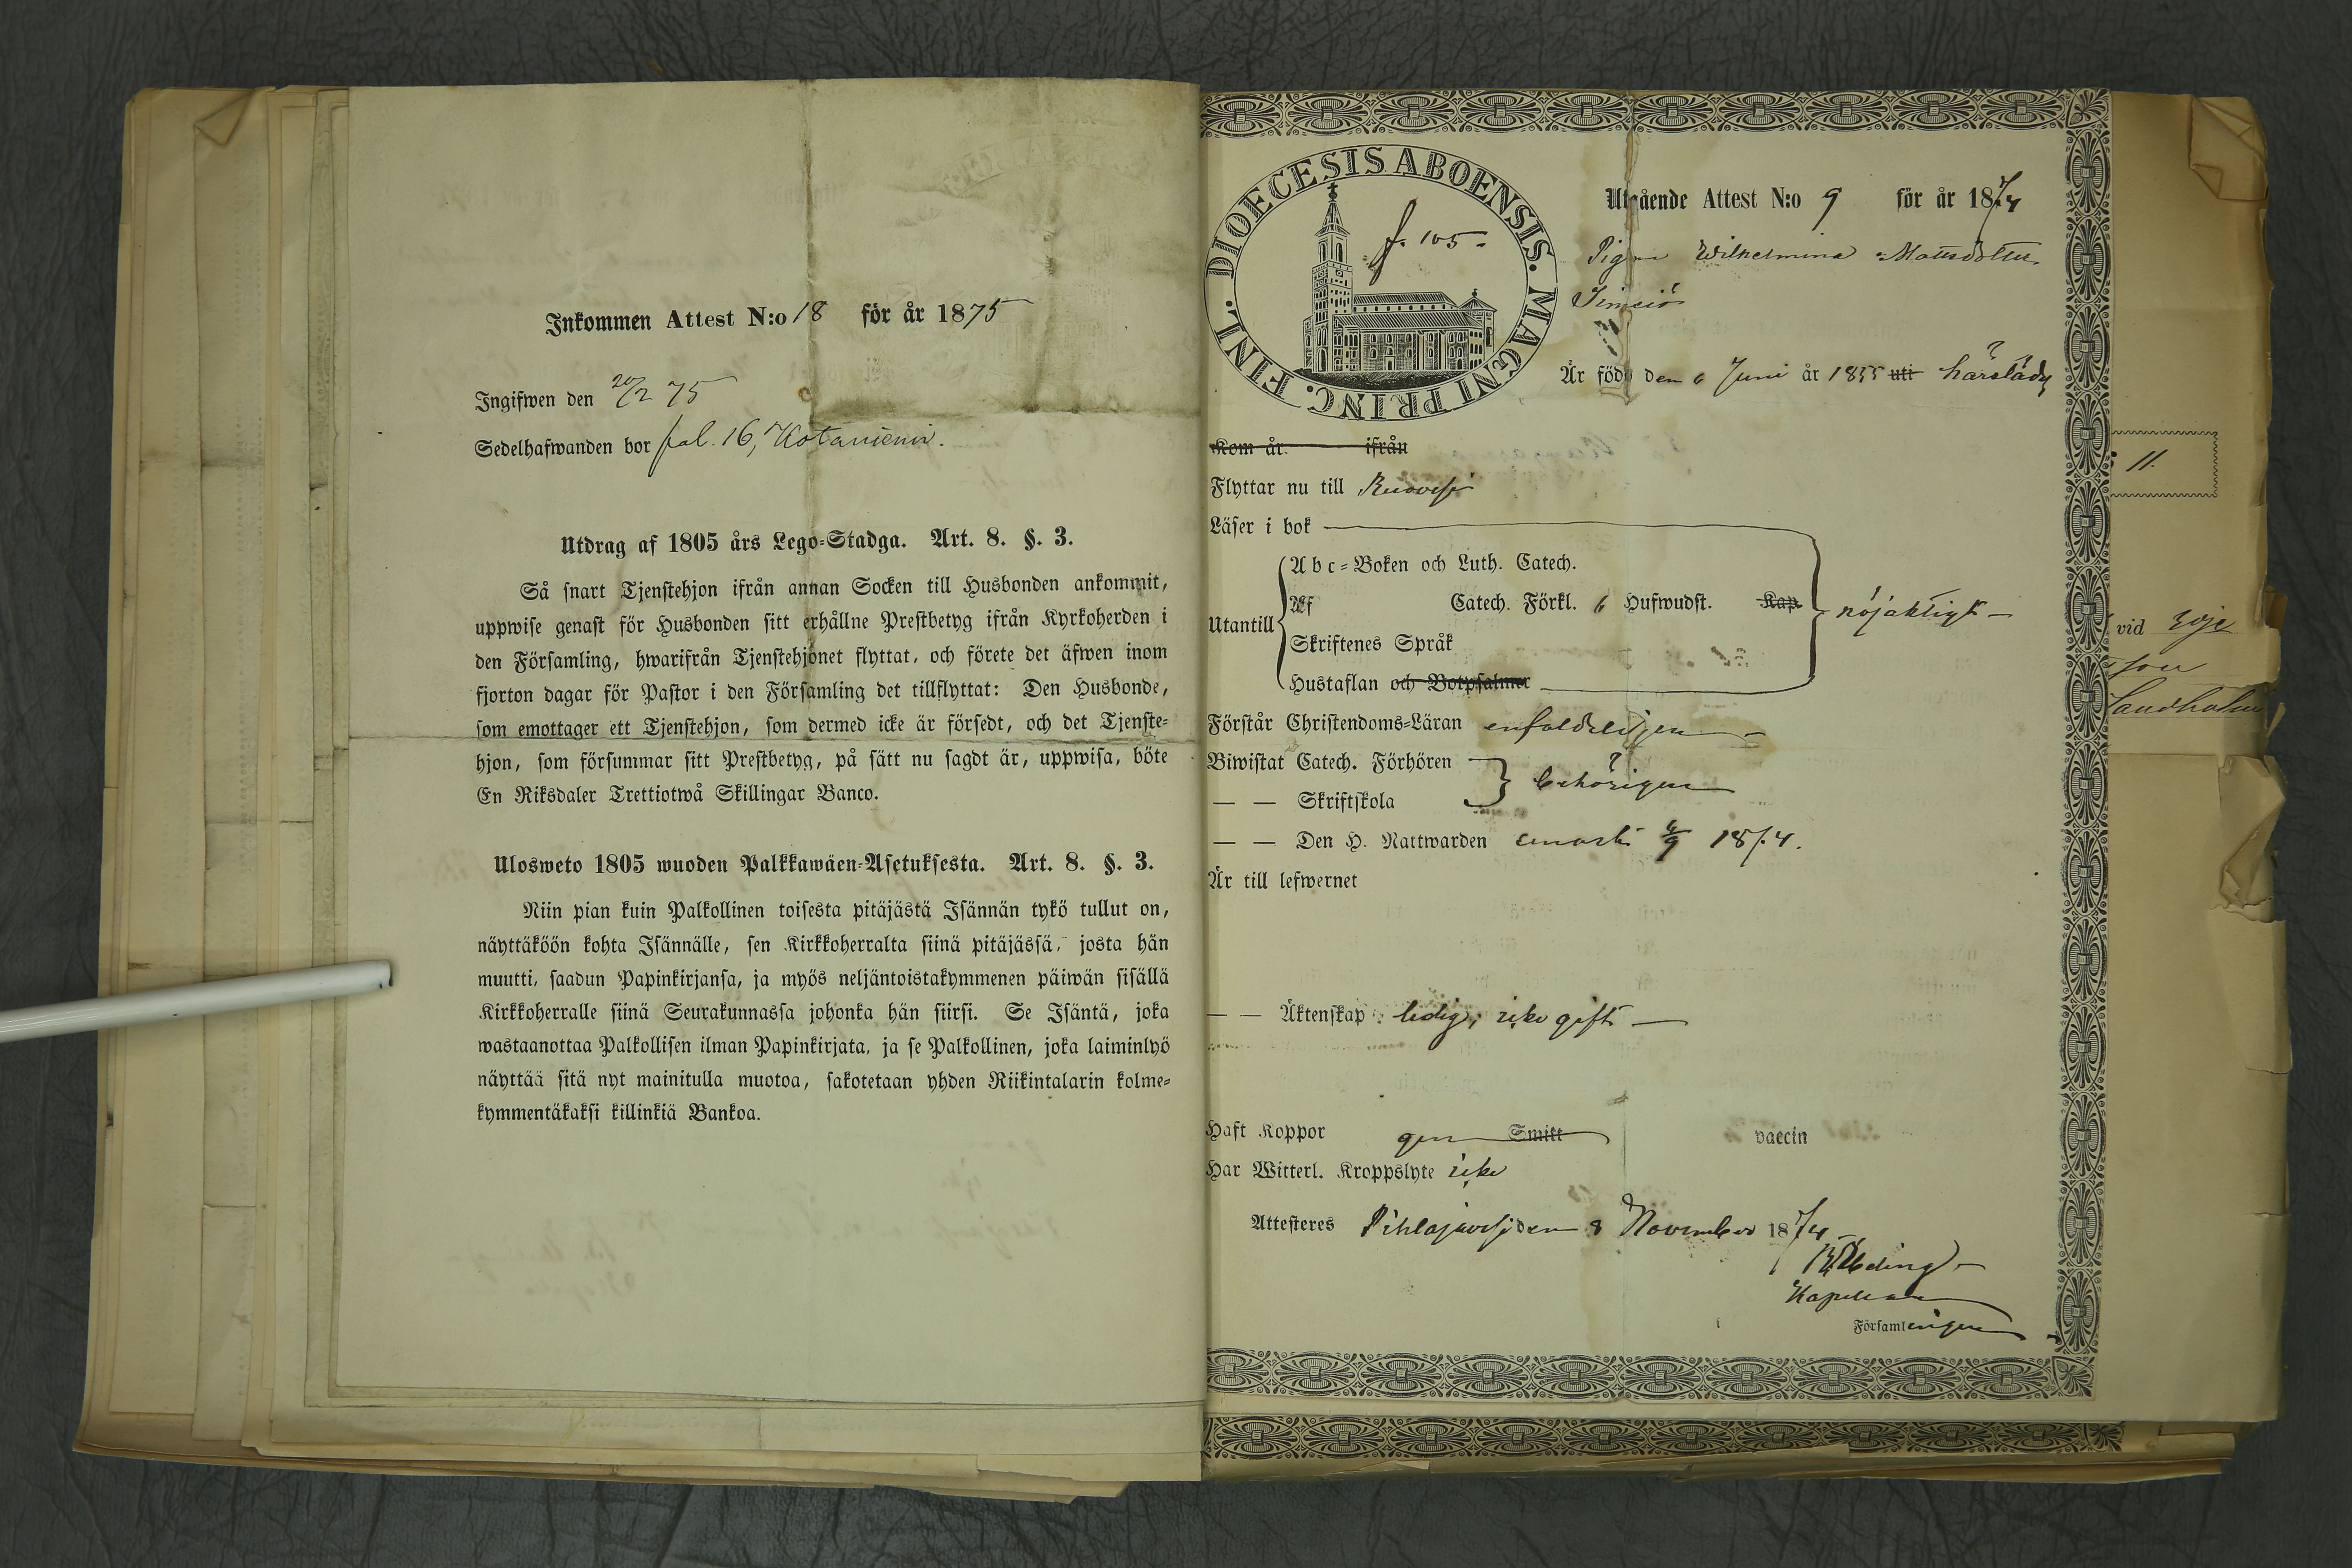 Inkommen Attest N:o 18 för år 1875
Ingifwen den 20/2 75
Sedelhafwanden bor fol. 16, Kotaniemi.
Utdrag af 1805 års Lego-Stadga. Art. 8. §. 3.
Så snart Tjenstehjon ifrån annan Socken till Husbonden ankommit,
uppwise genast för Husbonden sitt erhållne Prestbetyg ifrån Kyrkoherden i
den Församling, hwarifrån Tjenstehjonet flyttat, och förete det äfwen inom
fjorton dagar för Pastor i den Församling det tillflyttat: Den Husbonde,
som emottager ett Tjenstehjon, som dermed icke är försedt, och det Tjenste-
hjon, som försummar sitt Prestbetyg, på sätt nu sagdt är, uppwisa, böte
En Riksdaler Trettiotwå Skillingar Banco.
Ulosweto 1805 wuoden Palkkawäen-Asetuksesta. Art. 8. §. 3.
Niin pian kuin Palkollinen toisesta pitäjästä Isännän tykö tullut on,
näyttäköön kohta Isännälle, sen Kirkkoherralta siinä pitäjässä, josta hän
muutti, saadun Papinkirjansa, ja myös neljäntoistakymmenen päiwän sisällä
Kirkkoherralle siinä Seurakunnassa johonka hän siirsi. Se Isäntä, joka
wastaanottaa Palkollisen ilman Papinkirjata, ja se Palkollinen, joka laiminlyö
näyttää sitä nyt mainitulla muotoa, sakotetaan yhden Riikintalarin kolme-
kymmentäkaksi killinkiä Bankoa.
DIOECESIS ABOENSIS. MAGNI PRINC. FINL.
f. 105.
Utgående Attest N:o 9 för år 1874
Pigan Wilhelmina Mattsdotter
Är född den 6 Juni år 1855 uti härstädes
Kom år ifrån
Flyttar nu till Ruovesi
Läser i bok
Utantill
Abc-Boken och Luth. Catech.
Af Catech. Förkl. 6 Hufwudst. Kap.
Skriftenes Språk
Hustaflan och Botpsalmer
nöjaktigt
Förstår Christendoms-Läran enfaldeligen
Biwistat Catech. Förhören
— — Skriftskola
behörigen
— — Den H. Nattwarden senast 6/9 1874.
Är till lefwernet
— — Äktenskap ledig; icke gift
Haft Koppor gen Smitt vaccin
Har Witterl. Kroppslyte icke
Attesteres Pihlajavesi den 8 November 1874
Kapellan
Församlingen
11.
vid
Sandholm